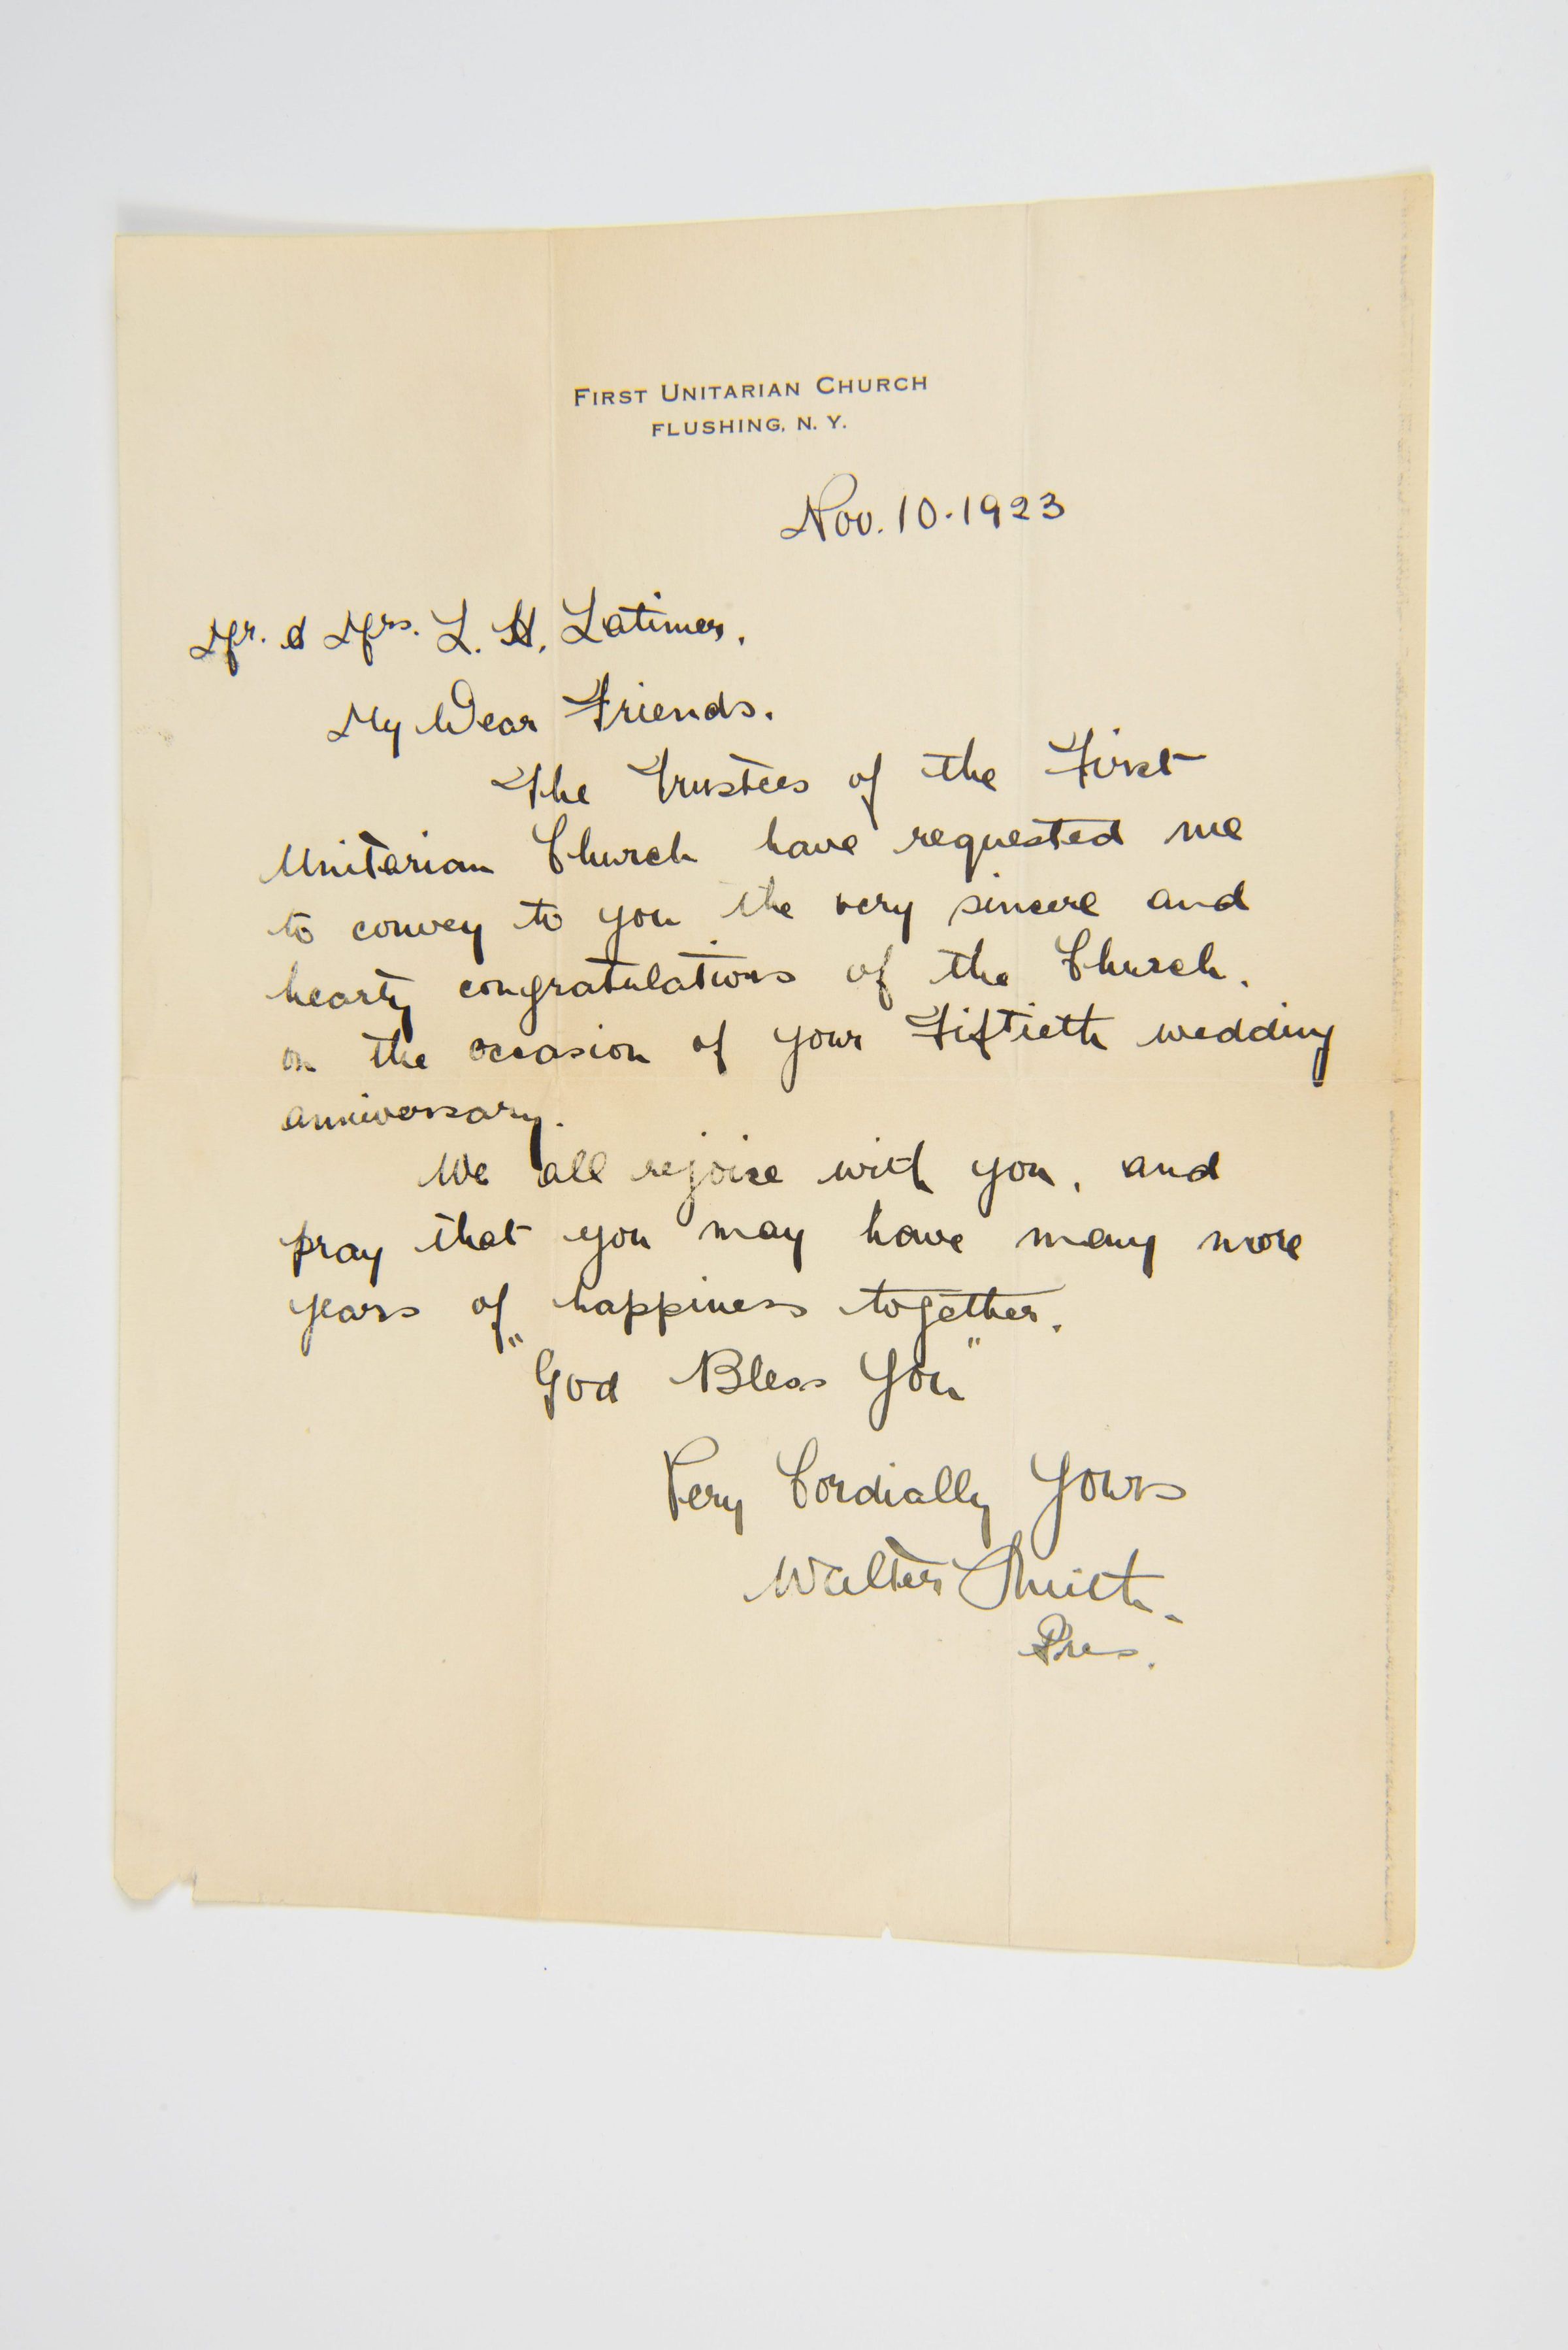 FIRST UNITARIAN CHURCH
FLUSHING, N. Y.
Nov. 10. 1923
Mr. & Mrs. L. H. Latimer.
My Dear Friends.
The Trustees of the First
Unitarian Church have requested me
to convey to you the very sincere and
hearty congratulations of the Church.
on the occasion of your Fiftieth wedding
anniversary.
We all rejoice with you, and
pray that you may have many more
years of happiness together.
"God Bless You"
Very Cordially Yours
Walter Smith.
Pres.